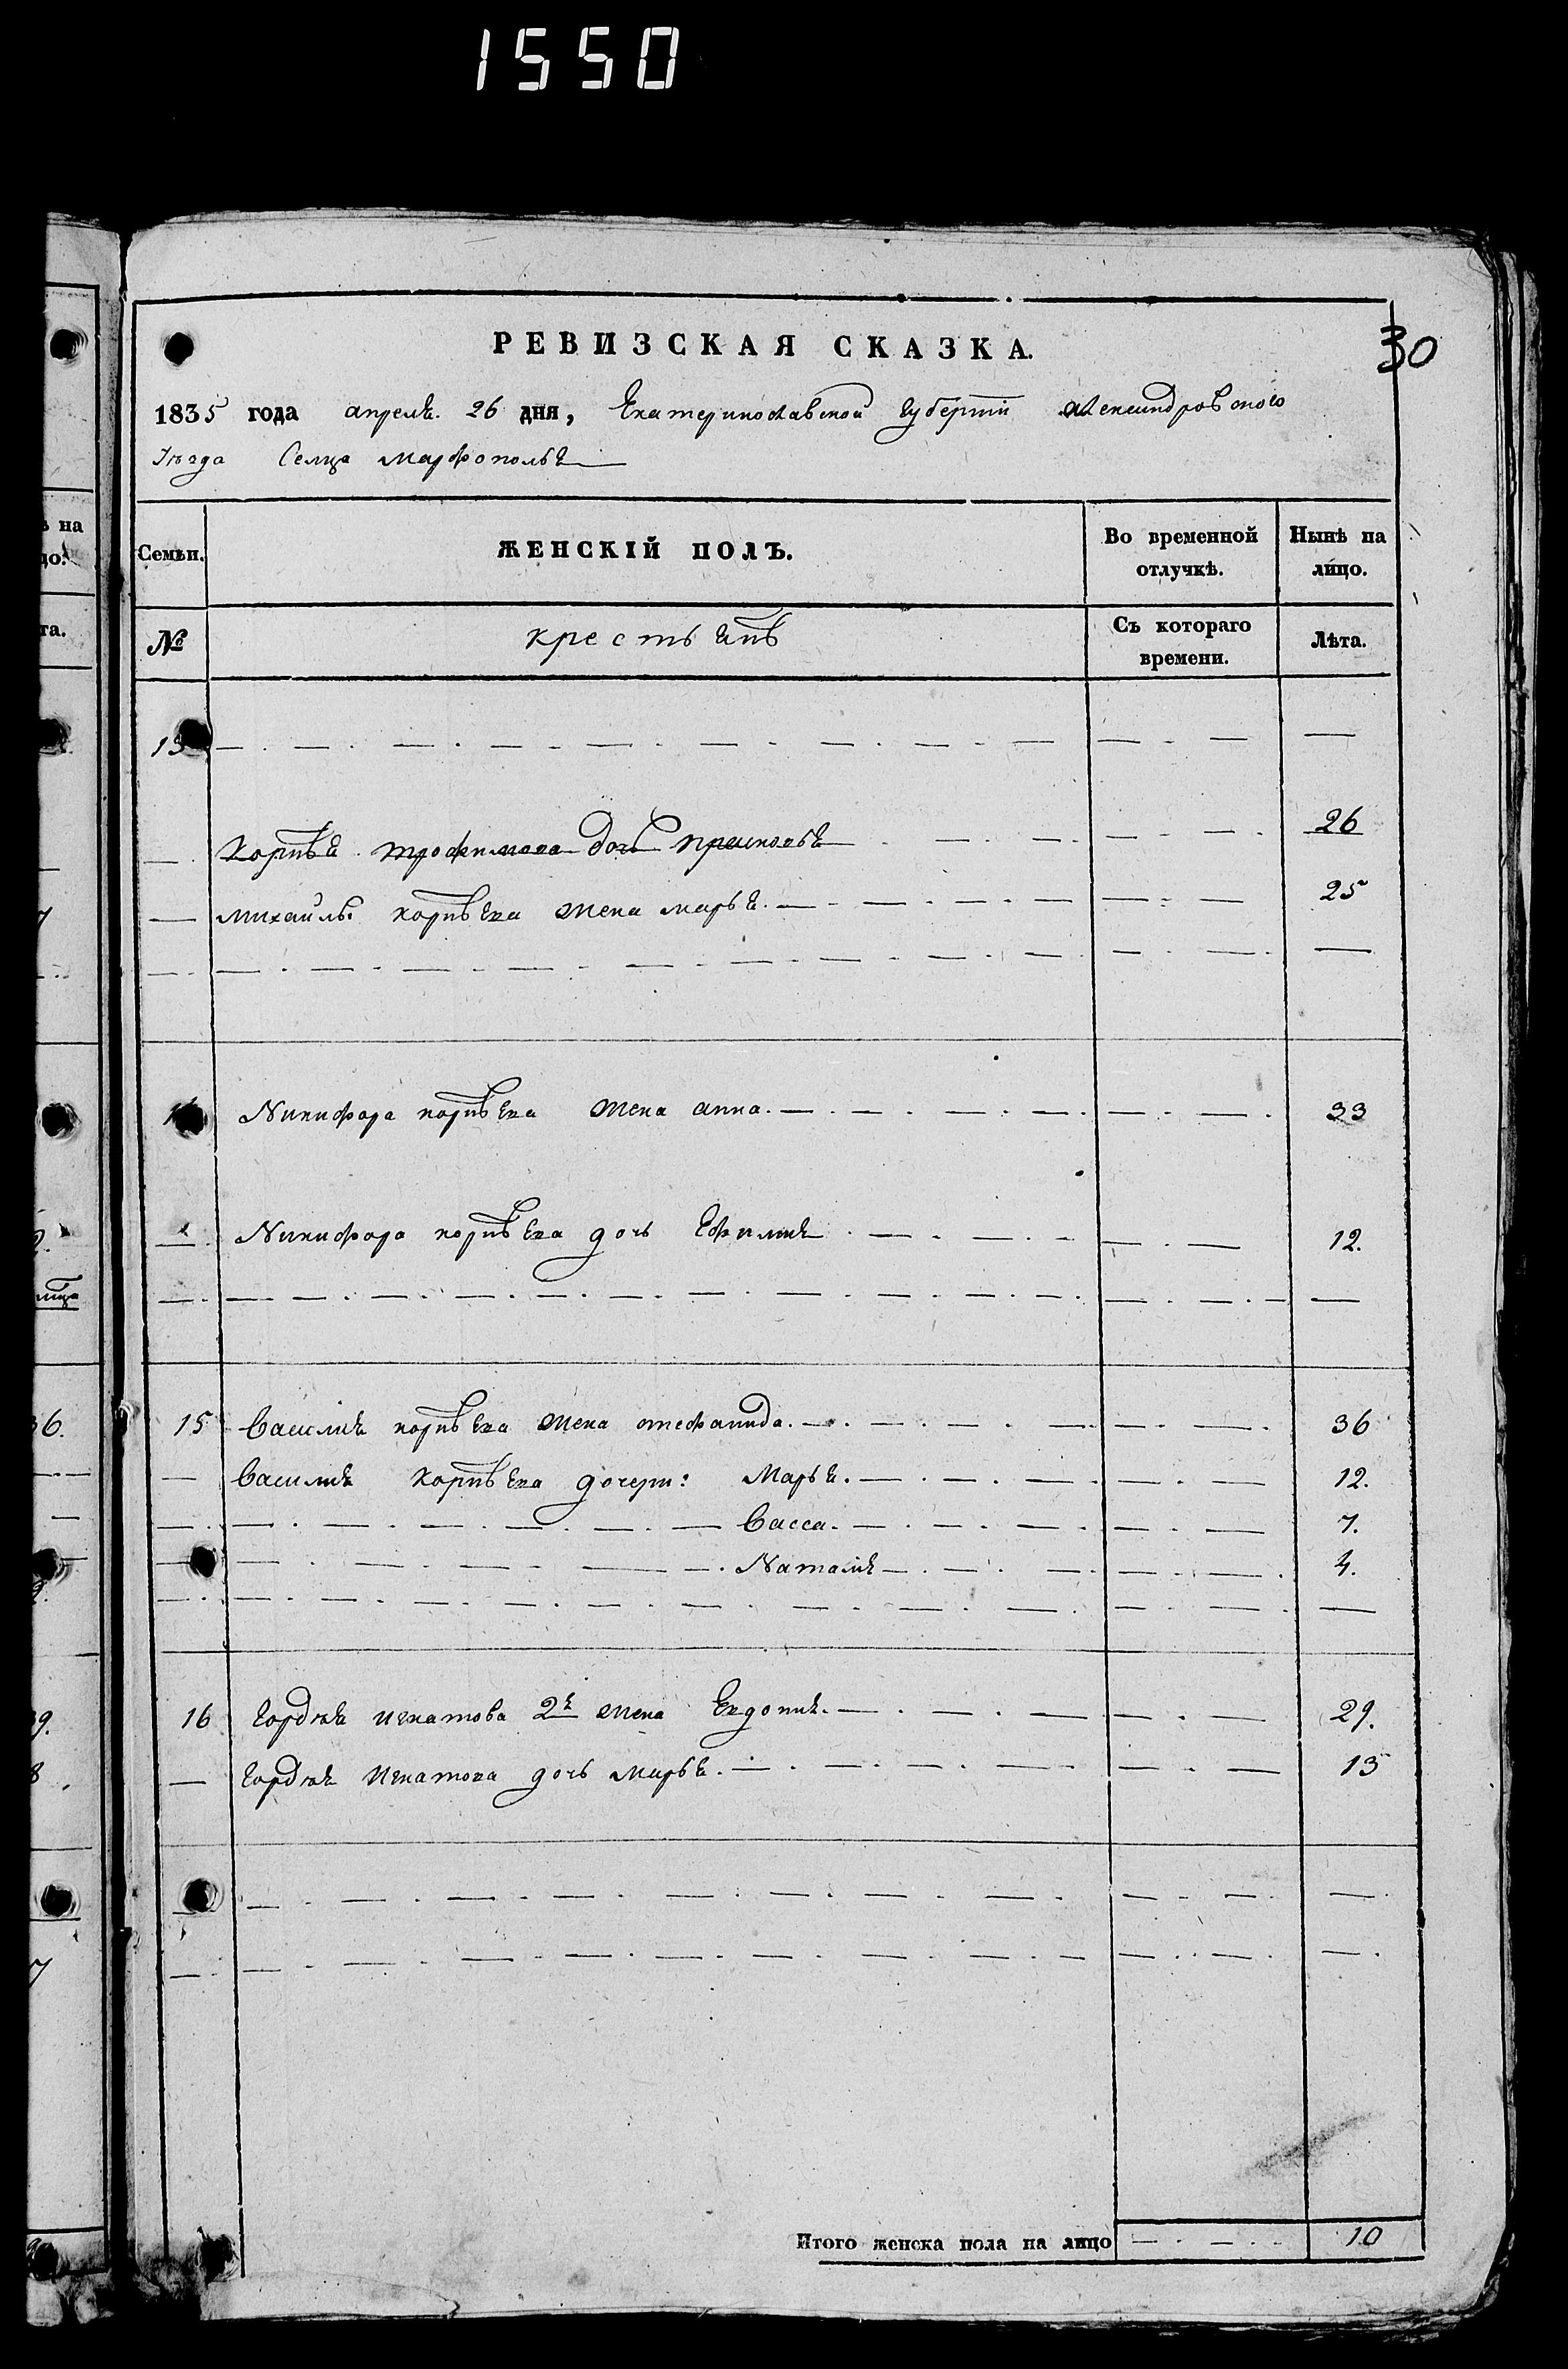 1550
30
РЕВИЗСКАЯ СКАЗКА.
1835 года апреля. 26 дня, Екатеринославской губернии Александровского
Уезда Селца Марфополья
Семьи. ЖЕНСКІЙ ПОЛЪ. Во временной отлучкѣ. Нынѣ на лицо.
№ крестьянъ Съ котораго времени. Лѣта.
13
Корнѣя Трофимова дочь Прасковья 26
Михайлы Корнѣева жена Марья. 25
Никифора Корнѣева жена Анна. 33
Никифора Корнѣева дочь Ефимия 12.
15 Василия Корнѣева жена Стефанида. 36
Василия Корнѣева дочери: Марья. 12.
Васса. 7.
Наталия 4.
16 Гордѣя Игнатова 2я жена Евдокия. 29.
Гордѣя Игнатова дочь Марья. 13
Итого женска пола на лицо 10